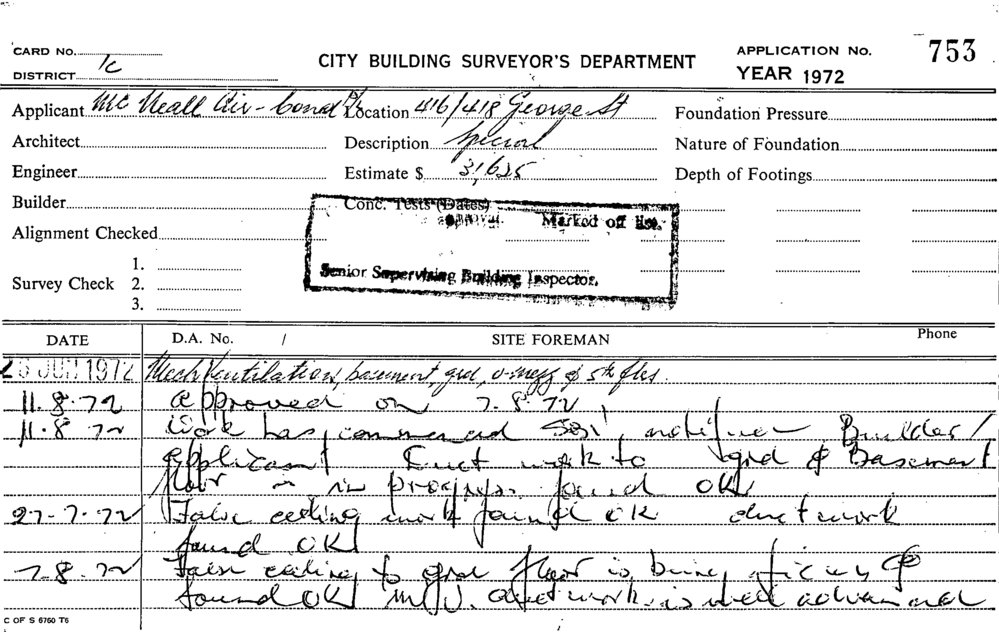 CARD No.
DISTRICT 1c
CITY BUILDING SURVEYOR'S DEPARTMENT
APPLICATION No. 753
YEAR 1972
Applicant Mc Neall Air-cond P/L Location 416/418 George St Foundation Pressure
Architect Description Special Nature of Foundation
Engineer Estimate $ 31,625 Depth of Footings
Builder Conc. Tests (Dates)
Marked off list.
Alignment Checked
Senior Supervising Building Inspector.
Survey Check
1.
2.
3.
DATE D.A. No. / SITE FOREMAN Phone
26 JUN 1972 Mech Ventilation, basement, grd, & 5th flrs.
11.8.72 approved on 7.8.72
11.8.72 Work has commenced Builder/
applicant Duct work to grd & Basement
floor in progress found OK
27-7-72 False ceiling work found OK duct work
found OK
7.8.72 False ceiling to grd floor is being
found OK M/V. duct work is well advanced
C OF S 6760 T6